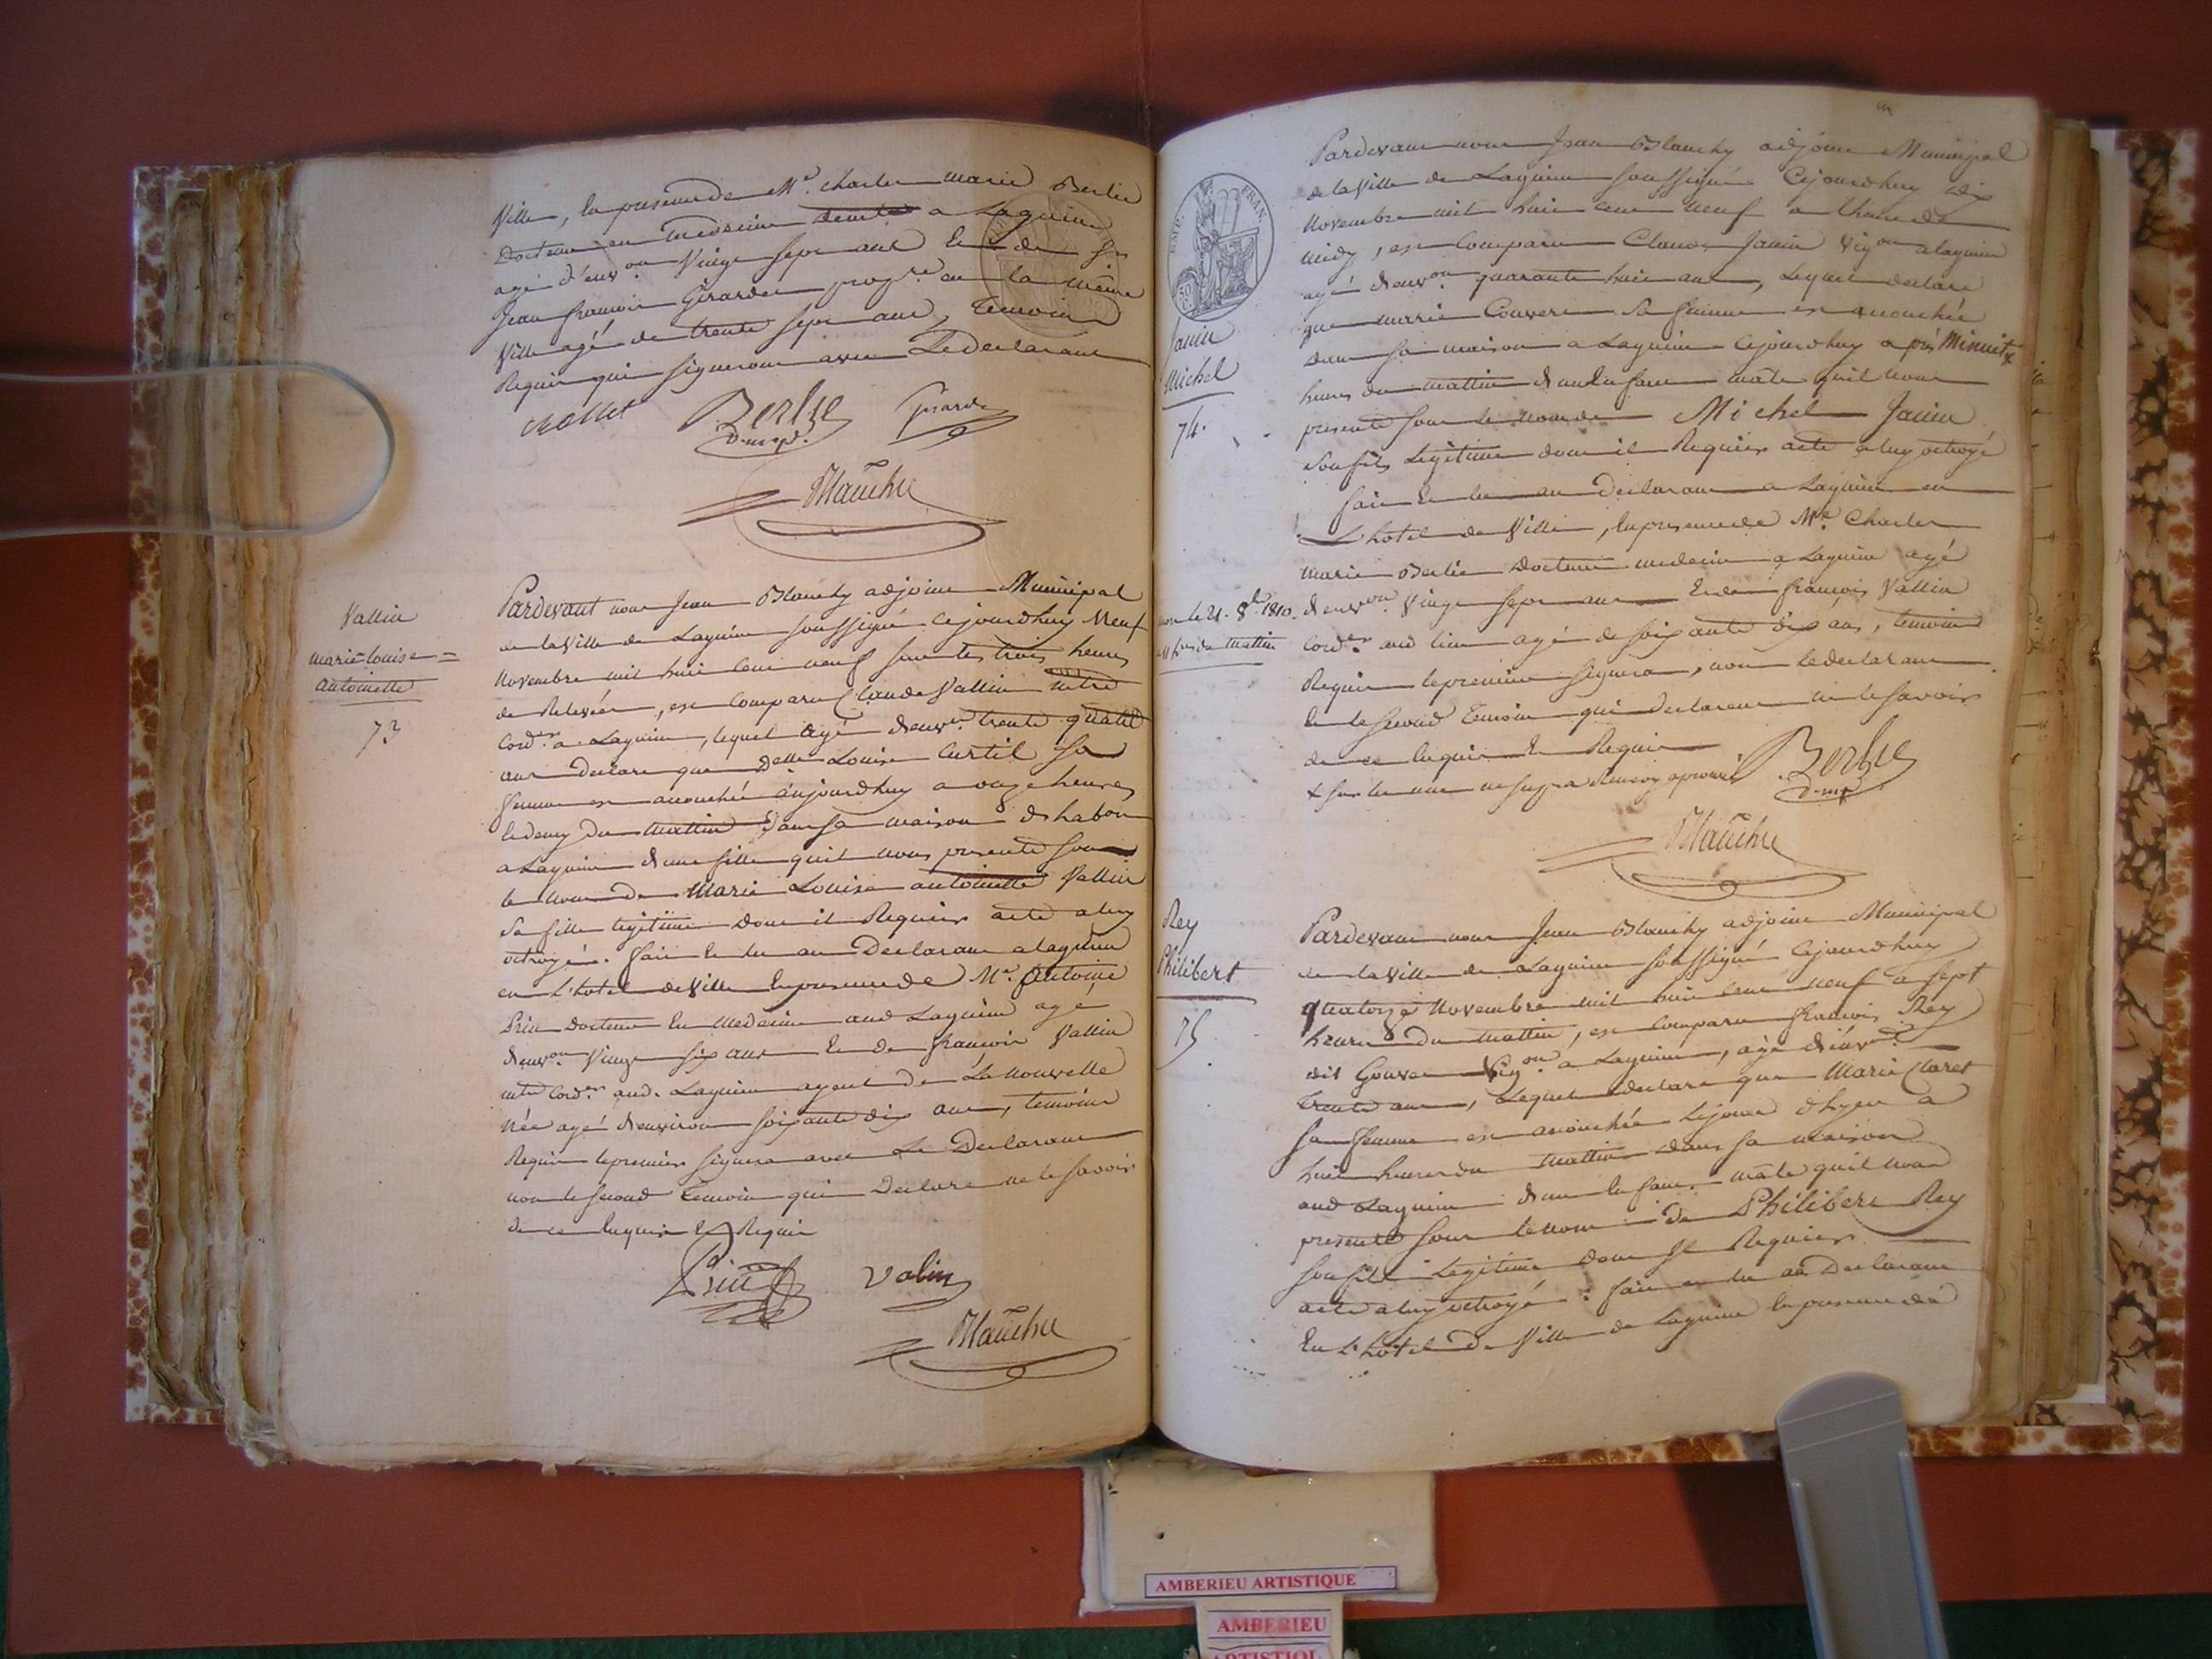 Ville, en presence de Mr. charles marie Berlie
Docteur en medecine demt a Lagnieu
agé d'envon Vingt sept ans et de sr
Jean francois Girardet propre en la même
Ville agé de trente sept ans, temoins
Requis qui signeront avec Le declarant
Berlie
d. m. p.
Girardet
Blanchy
Vallin
marie-louise=
antoinette
73
Pardevant nous Jean Blanchy adjoint Municipal
de la Ville de Lagnieu soussigné Cejourdhuy Neuf
Novembre mil huit cent neuf sur les trois heures
de Relevée, est Comparu Claude Vallin mtre
Cordier a Lagnieu, lequel agé denvon trente quatre
ans Declare que Delle Louise Curtil sa
femme est accouchée aujourdhuy a onze heures
et demy du mattin dans sa maison dhabon
a Lagnieu dune fille quil nous presente sous
le nom de Marie Louise antoinette Vallin
sa fille legitime dont il Requiers acte a luy
octroyé. fait et lu au Declarant a lagnieu
en L'hotel de Ville en presence de Mr. Antoine
Prin docteur en Medecine aud Lagnieu agé
denvon Vingt six ans et de francois Vallin
mtre Corder aud. Lagnieu ayeul de La nouvelle
Née agé denviron soixante dix ans, temoins
Requis le premier signera avec Le Declarant
non le second temoin qui Declare ne le savoir
de ce enquis et Requis
Prin
valin
Blanchy
EMP. FRAN.
Janin
Michel
74.
Pardevant nous Jean Blanchy adjoint Municipal
de la Ville de Lagnieu soussigné Cejourdhuy dix
Novembre mil huit cent neuf a lheure de
midy, est Comparu Claude Janin Vigon a lagnieu
agé denvon quarante huit ans, Lequel declare
que marie Convert sa femme est accouchée
dans sa maison a Lagnieu Cejourdhuy après Minuit x
heures du mattin dun enfant mâle quil nous
presente sous le nom de Michel Janin
son fils Legitime dont il Requiers acte a luy octroyé
fait et lu au Declarant a Lagnieu en
L'hotel de Ville, en presence de Mr. Charles
marie Berlie Docteur medecin a Lagnieu agé
denvon Vingt sept ans et de francois Vallin
corder aud lieu agé de soixante dix ans, temoins
Requis le premier signera, non le declarant
et le second temoin qui declarent ne le savoir
de ce enquis et Requis
mort le 21. 8bre 1810.
hres du mattin
Berlie
d. m. p.
Blanchy
Rey
Philibert
75
Pardevant nous Jean Blanchy adjoint Municipal
de la Ville de Lagnieu soussigné Cejourdhuy
quatorze Novembre mil huit cent neuf a sept
heures du mattin, est Comparu francois Rey
dit Gouvet Vigon a Lagnieu, agé d'envon
trente ans, Lequel declare que Marie Claret
sa femme est accouchée Lejour dhyer a
huit heures du mattin dans sa maison
aud Lagnieu dun enfant mâle quil nous
presente sous le nom de Philibert Rey
son fils Legitime dont Il Requiers
acte a luy octroyé. fait et lu au Declarant
En L'hotel de Ville de Lagnieu en presence de
AMBERIEU ARTISTIQUE
AMBERIEU
ARTISTIQUE